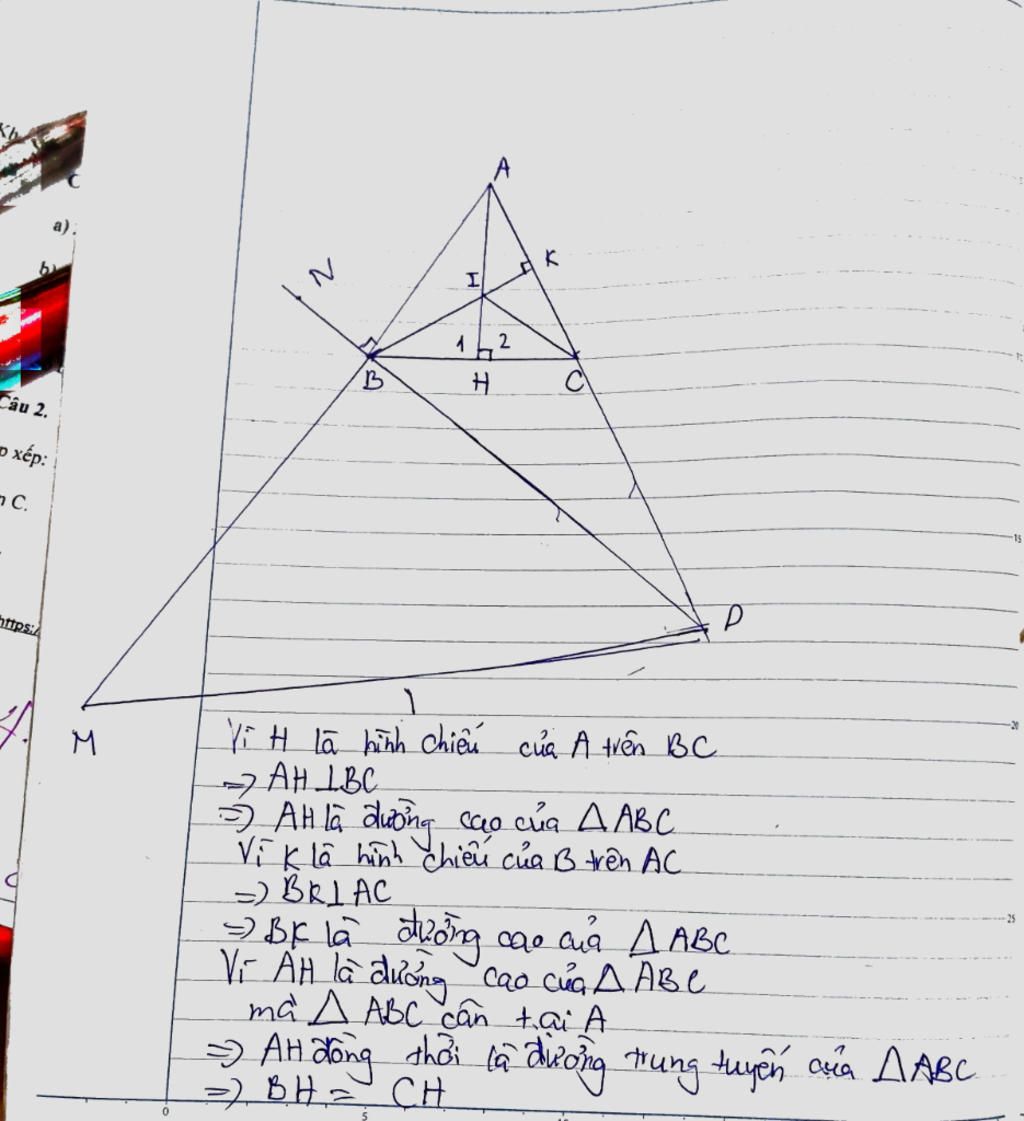 Kh
C
a)
b)
Câu 2.
p xếp:
n C.
https:/
A
N
K
I
1 2
B
H
C
D
M
Vì H là hình chiếu của A trên BC
=> AH⊥BC
=> AH là đường cao của △ABC
Vì K là hình chiếu của B trên AC
=> BK⊥AC
=> BK là đường cao của △ABC
Vì AH là đường cao của △ABC
mà △ABC cân tại A
=> AH đồng thời là đường trung tuyến của △ABC
=> BH = CH
0
5
10
15
20
25